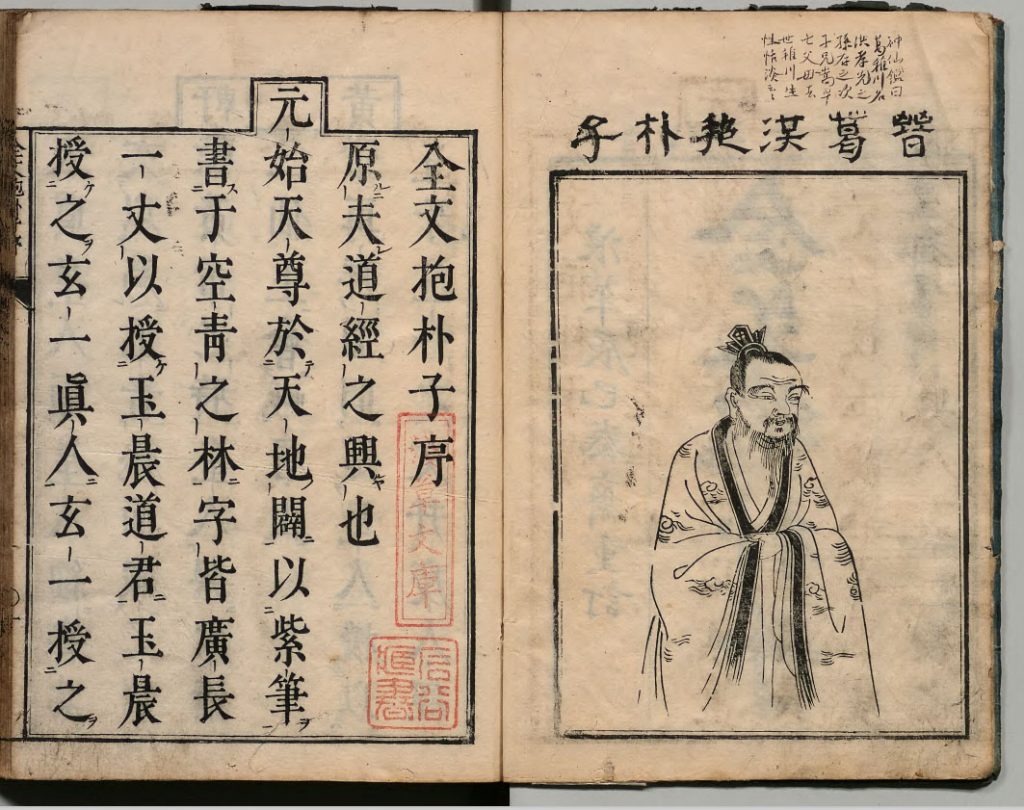 神仙鑑曰
葛稚川名
洪孝先之
孫存之次
子兄嵩早
父母去
世稚川生
性恬淡
晉葛洪抱朴子
全文抱朴子序
原夫道經之興也
元始天尊於天地闢以紫筆
書于空青之林字皆廣長
一丈以授玉晨道君玉晨
授之玄一眞人玄一授之
文庫